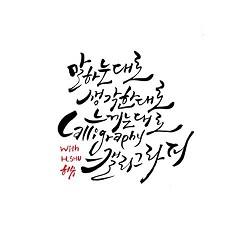 말하는대로
생각한대로
느끼는대로
Calligraphy
캘리그라피
with
H.SHU